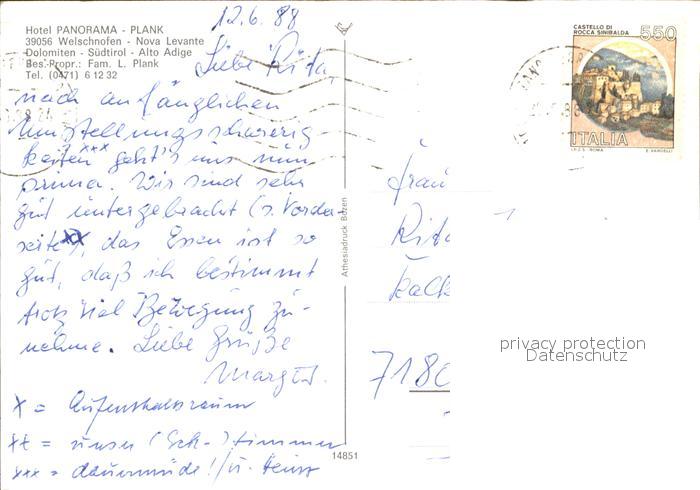 12.6.88
Hotel PANORAMA - PLANK
39056 Welschnofen - Nova Levante
Dolomiten - Südtirol - Alto Adige
Bes.-Propr.: Fam. L. Plank
Tel. (0471) 6 12 32
Liebe Rita,
nach anfänglichen
Umstellungsschwierig-
keiten xxx geht's uns nun
prima. Wir sind sehr
gut untergebracht (s. Vorder-
seite xx), das Essen ist so
gut, daß ich bestimmt
trotz viel Bewegung zu-
nehme. Liebe Grüße
Margit.
x = Aufenthaltsraum
xx = unser (Eck-) Zimmer
xxx = dauermüde! /u.
14851
Athesiadruck Bozen
CASTELLO DI
ROCCA SINIBALDA
550
ITALIA
I.P.Z.S. ROMA
E. VANGELLI
Frau
Rita
Kalk
718
privacy protection
Datenschutz